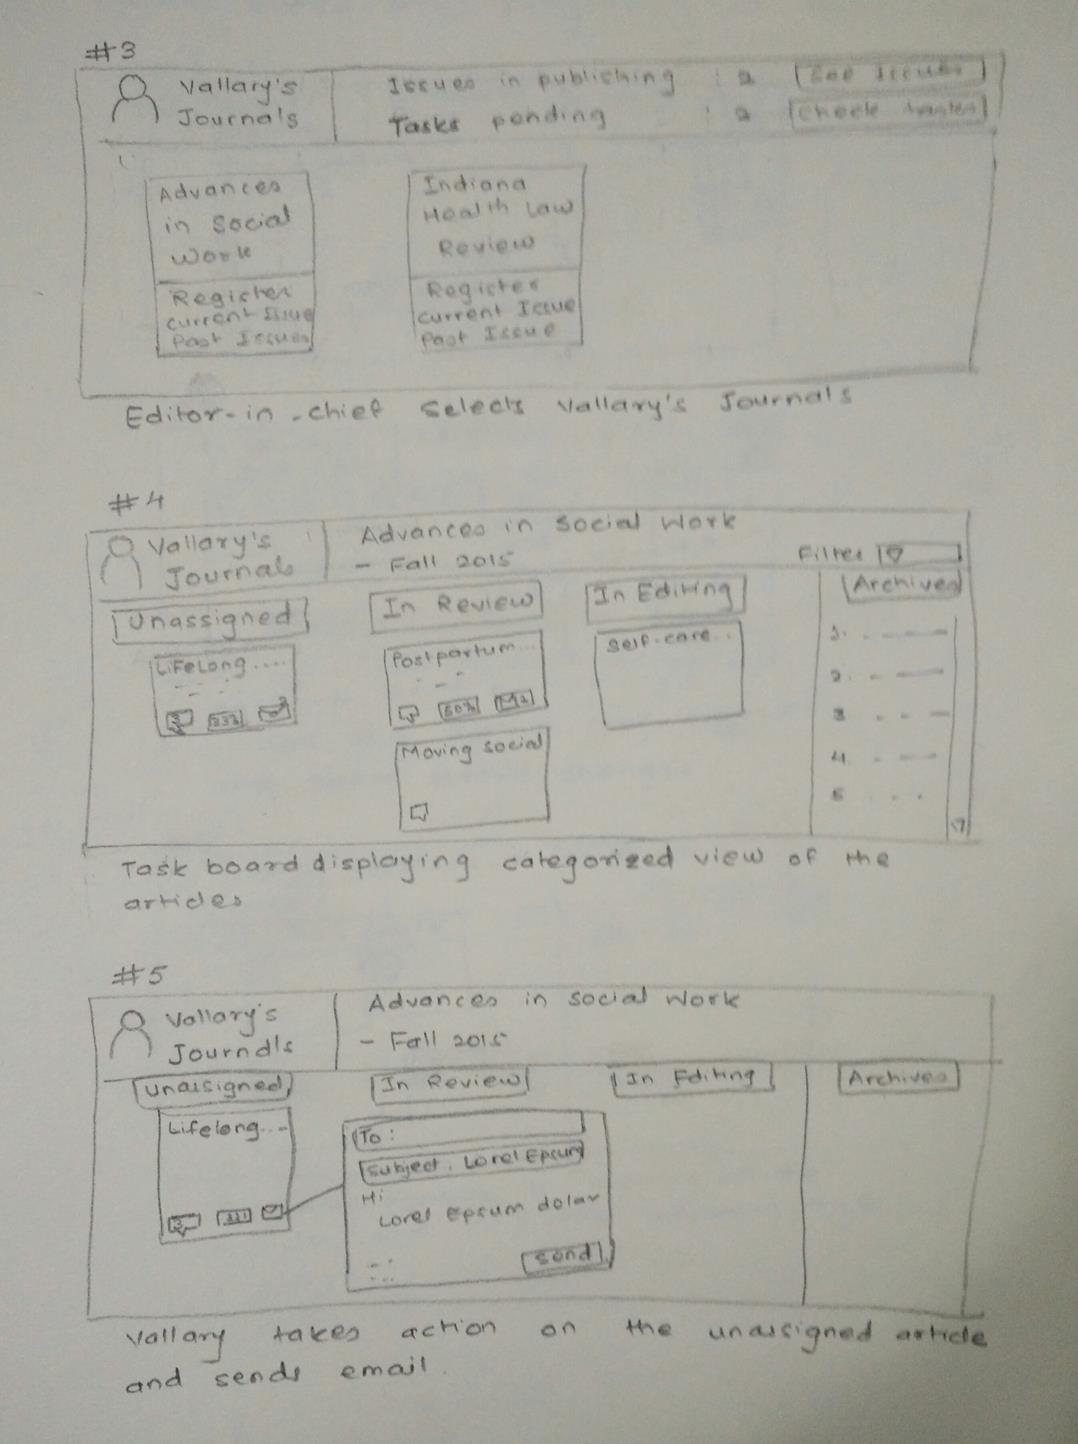 #3
Vallary's
Journals
Issues in publishing : 2 See Issues
Tasks pending : 2 Check tasks
Advances
in social
work
Register
current Issue
Past Issues
Indiana
Health Law
Review
Register
current Issue
Past Issue
Editor-in-chief selects Vallary's Journals
#4
Vallary's
Journals
Advances in social work
- Fall 2015
Filter
Unassigned
In Review
In Editing
Archives
Lifelong....
33%
Postpartum...
60%
Moving social
Self-care..
1.
2.
3
4.
5
Task board displaying categorized view of the
articles
#5
Vallary's
Journals
Advances in social work
- Fall 2015
Unassigned
In Review
In Editing
Archives
Lifelong...
To:
Subject. Lorel Epsum
Hi
Lorel Epsum dolar
Send
Vallary takes action on the unassigned article
and sends email.